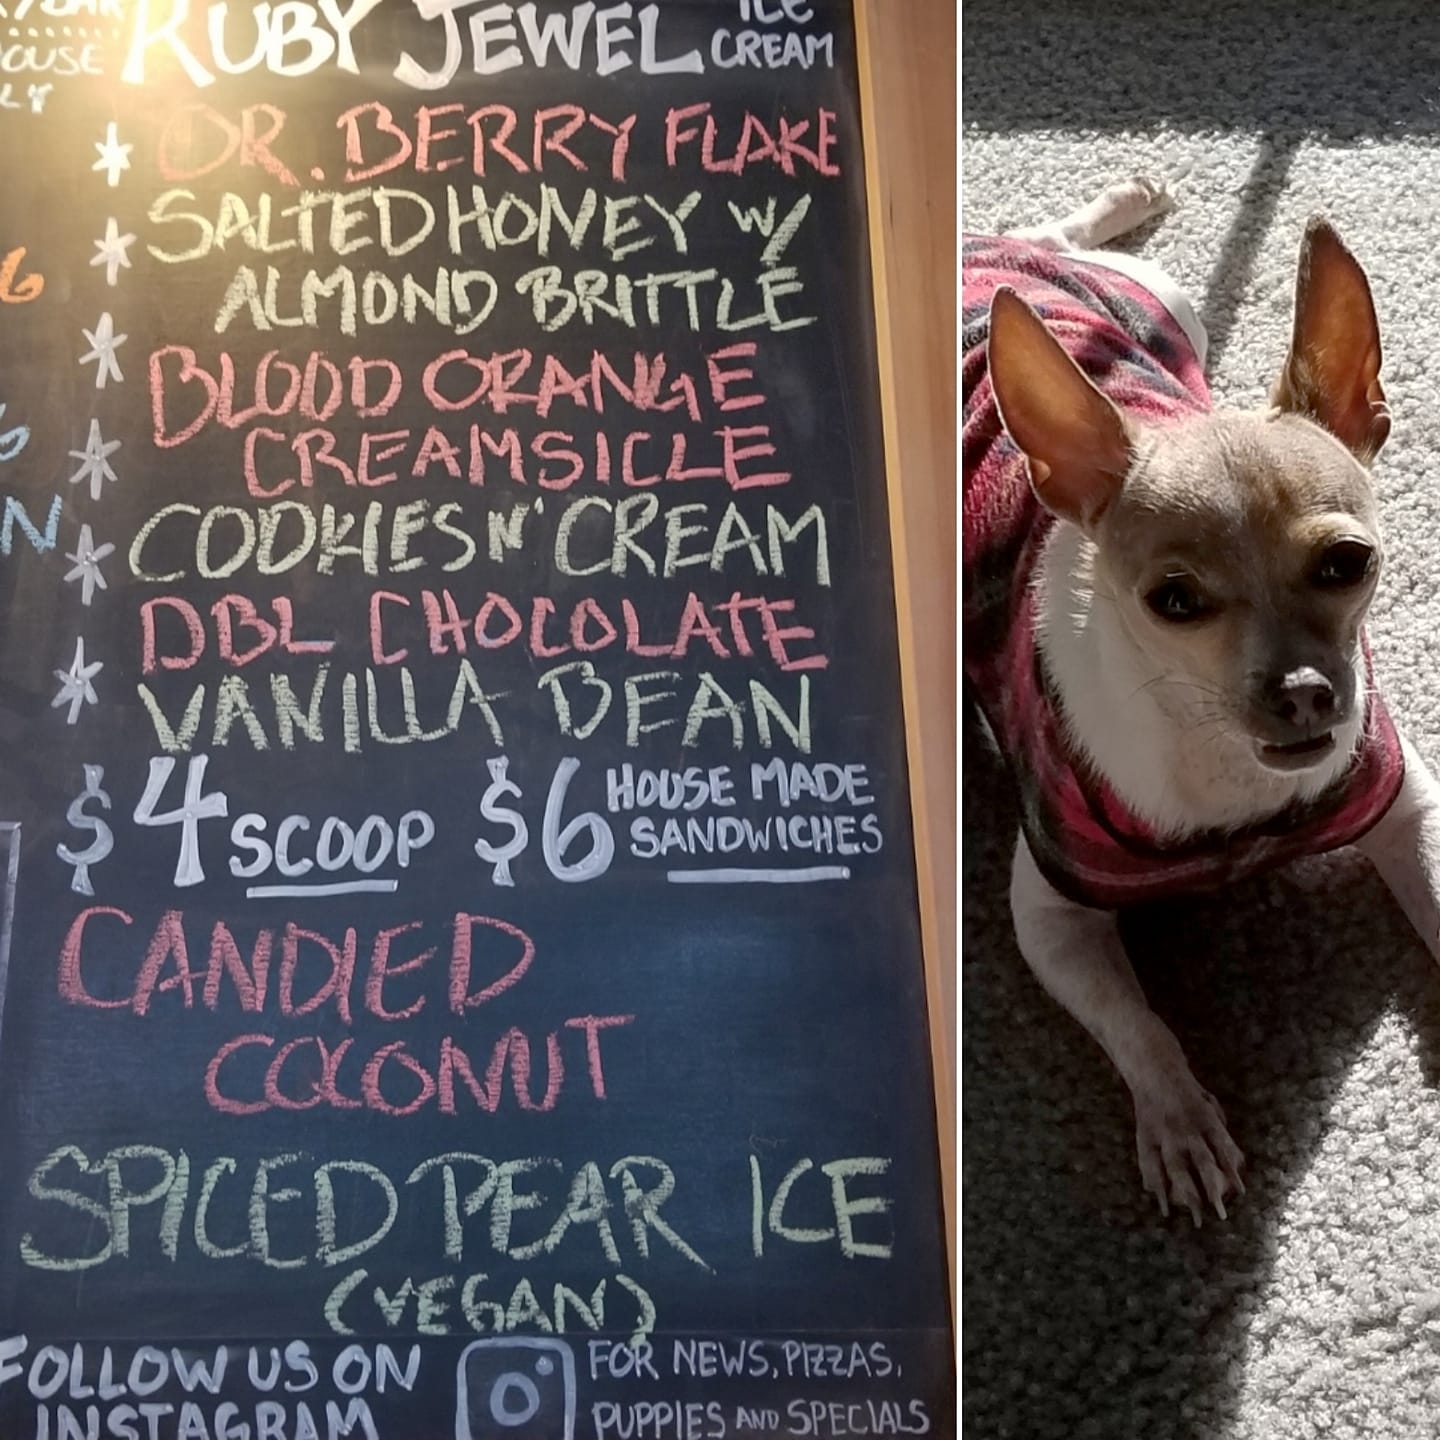 RUBY JEWEL ICE CREAM
DR. BERRY FLAKE
SALTED HONEY W/
ALMOND BRITTLE
BLOOD ORANGE
CREAMSICLE
COOKIES N' CREAM
DBL CHOCOLATE
VANILLA BEAN
$4 SCOOP $6 HOUSE MADE SANDWICHES
CANDIED
COCONUT
SPICED PEAR ICE
(VEGAN)
FOLLOW US ON
INSTAGRAM
FOR NEWS, PIZZAS,
PUPPIES AND SPECIALS